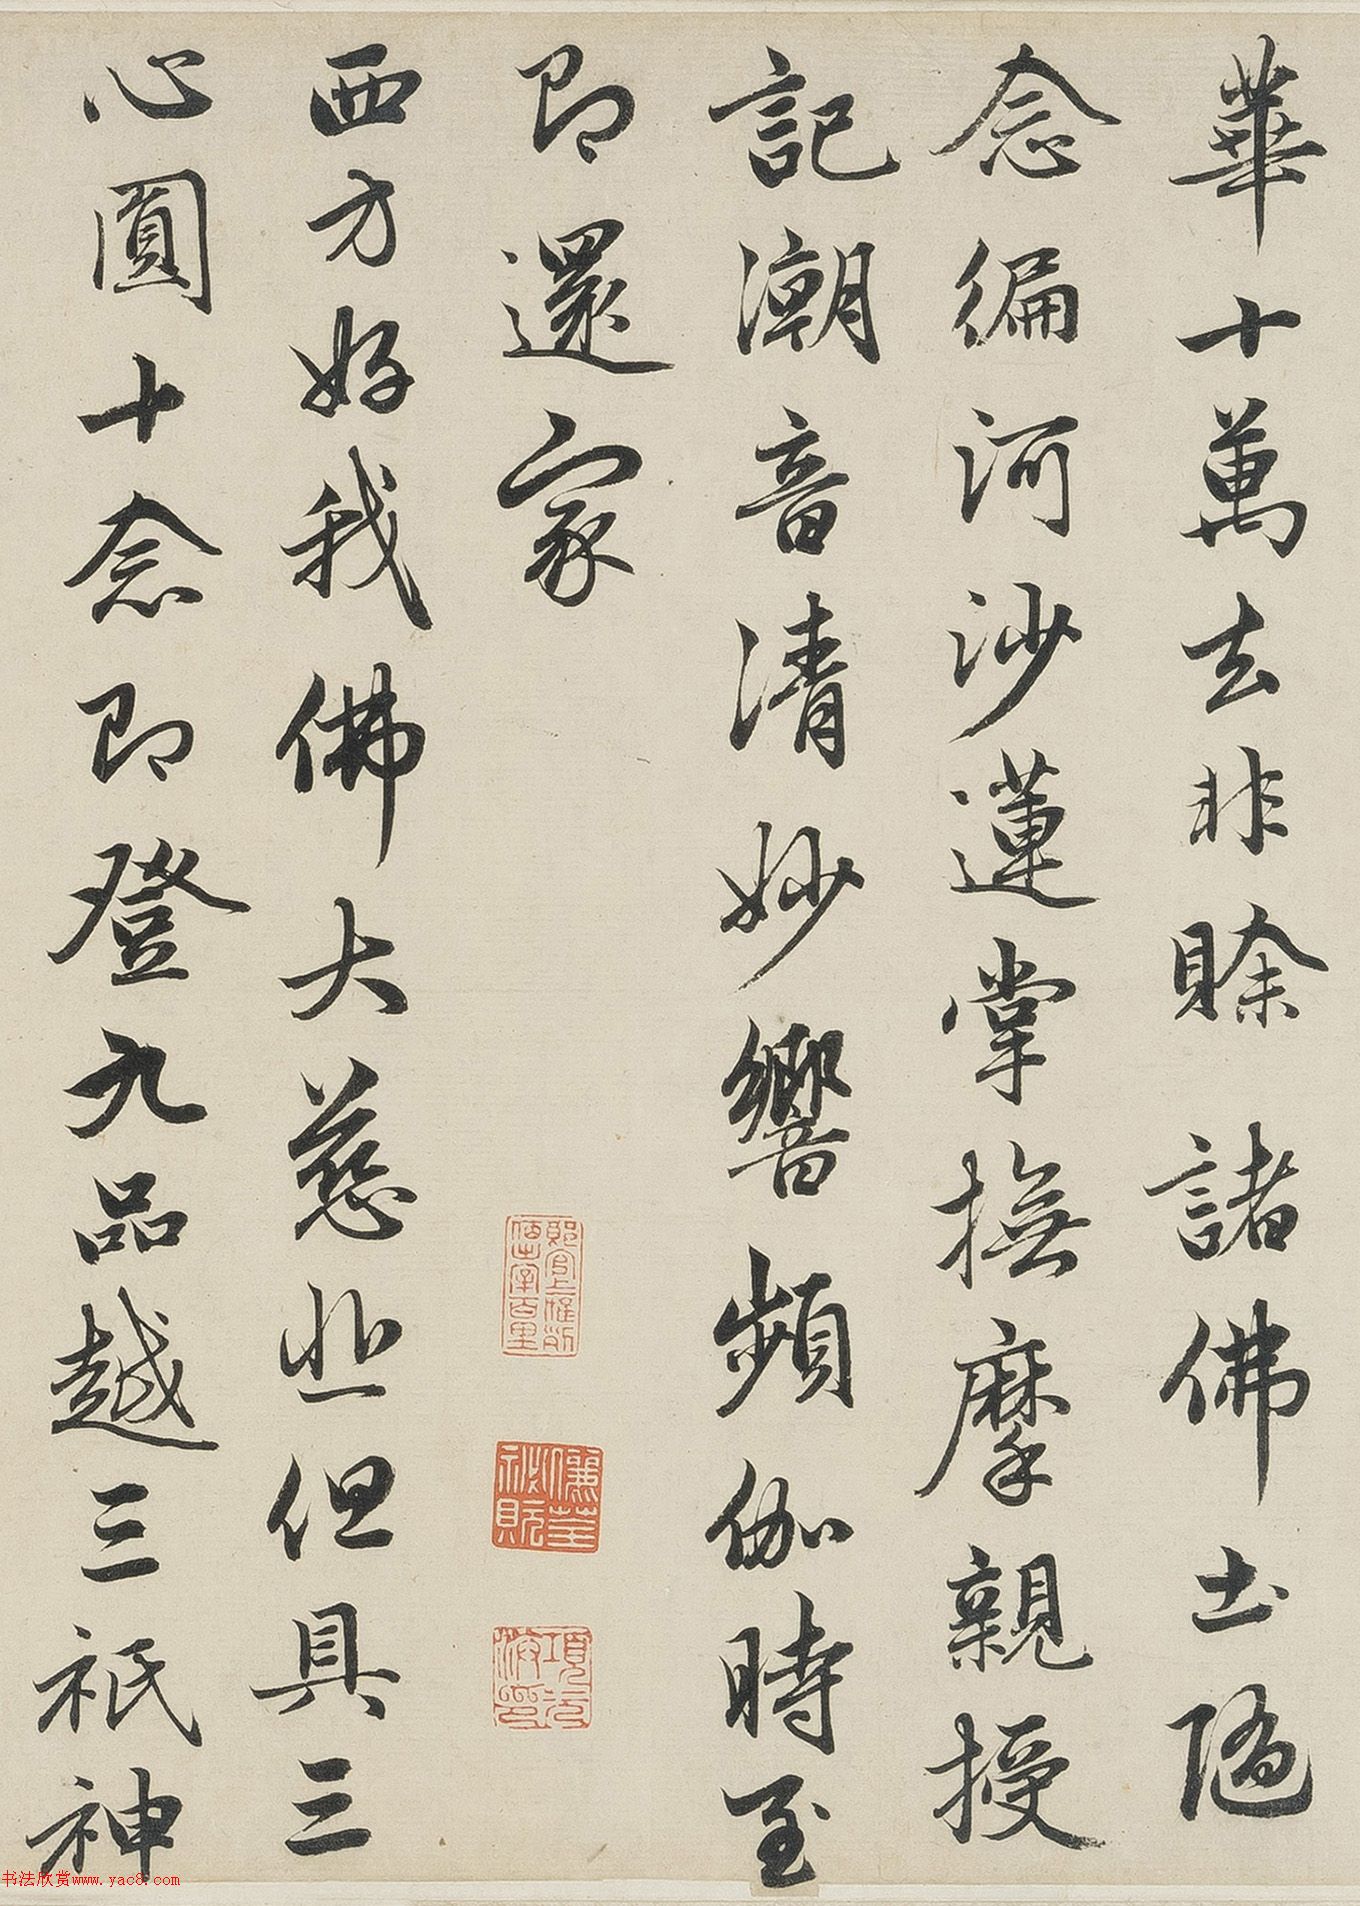 華十萬去非賖諸佛土隨
念徧河沙蓮掌撫摩親授
記潮音清妙響頻伽時至
即還家
西方好我佛大慈悲但具三
心圓十念即登九品越三祇神
项元
书法欣赏www.yac8.com